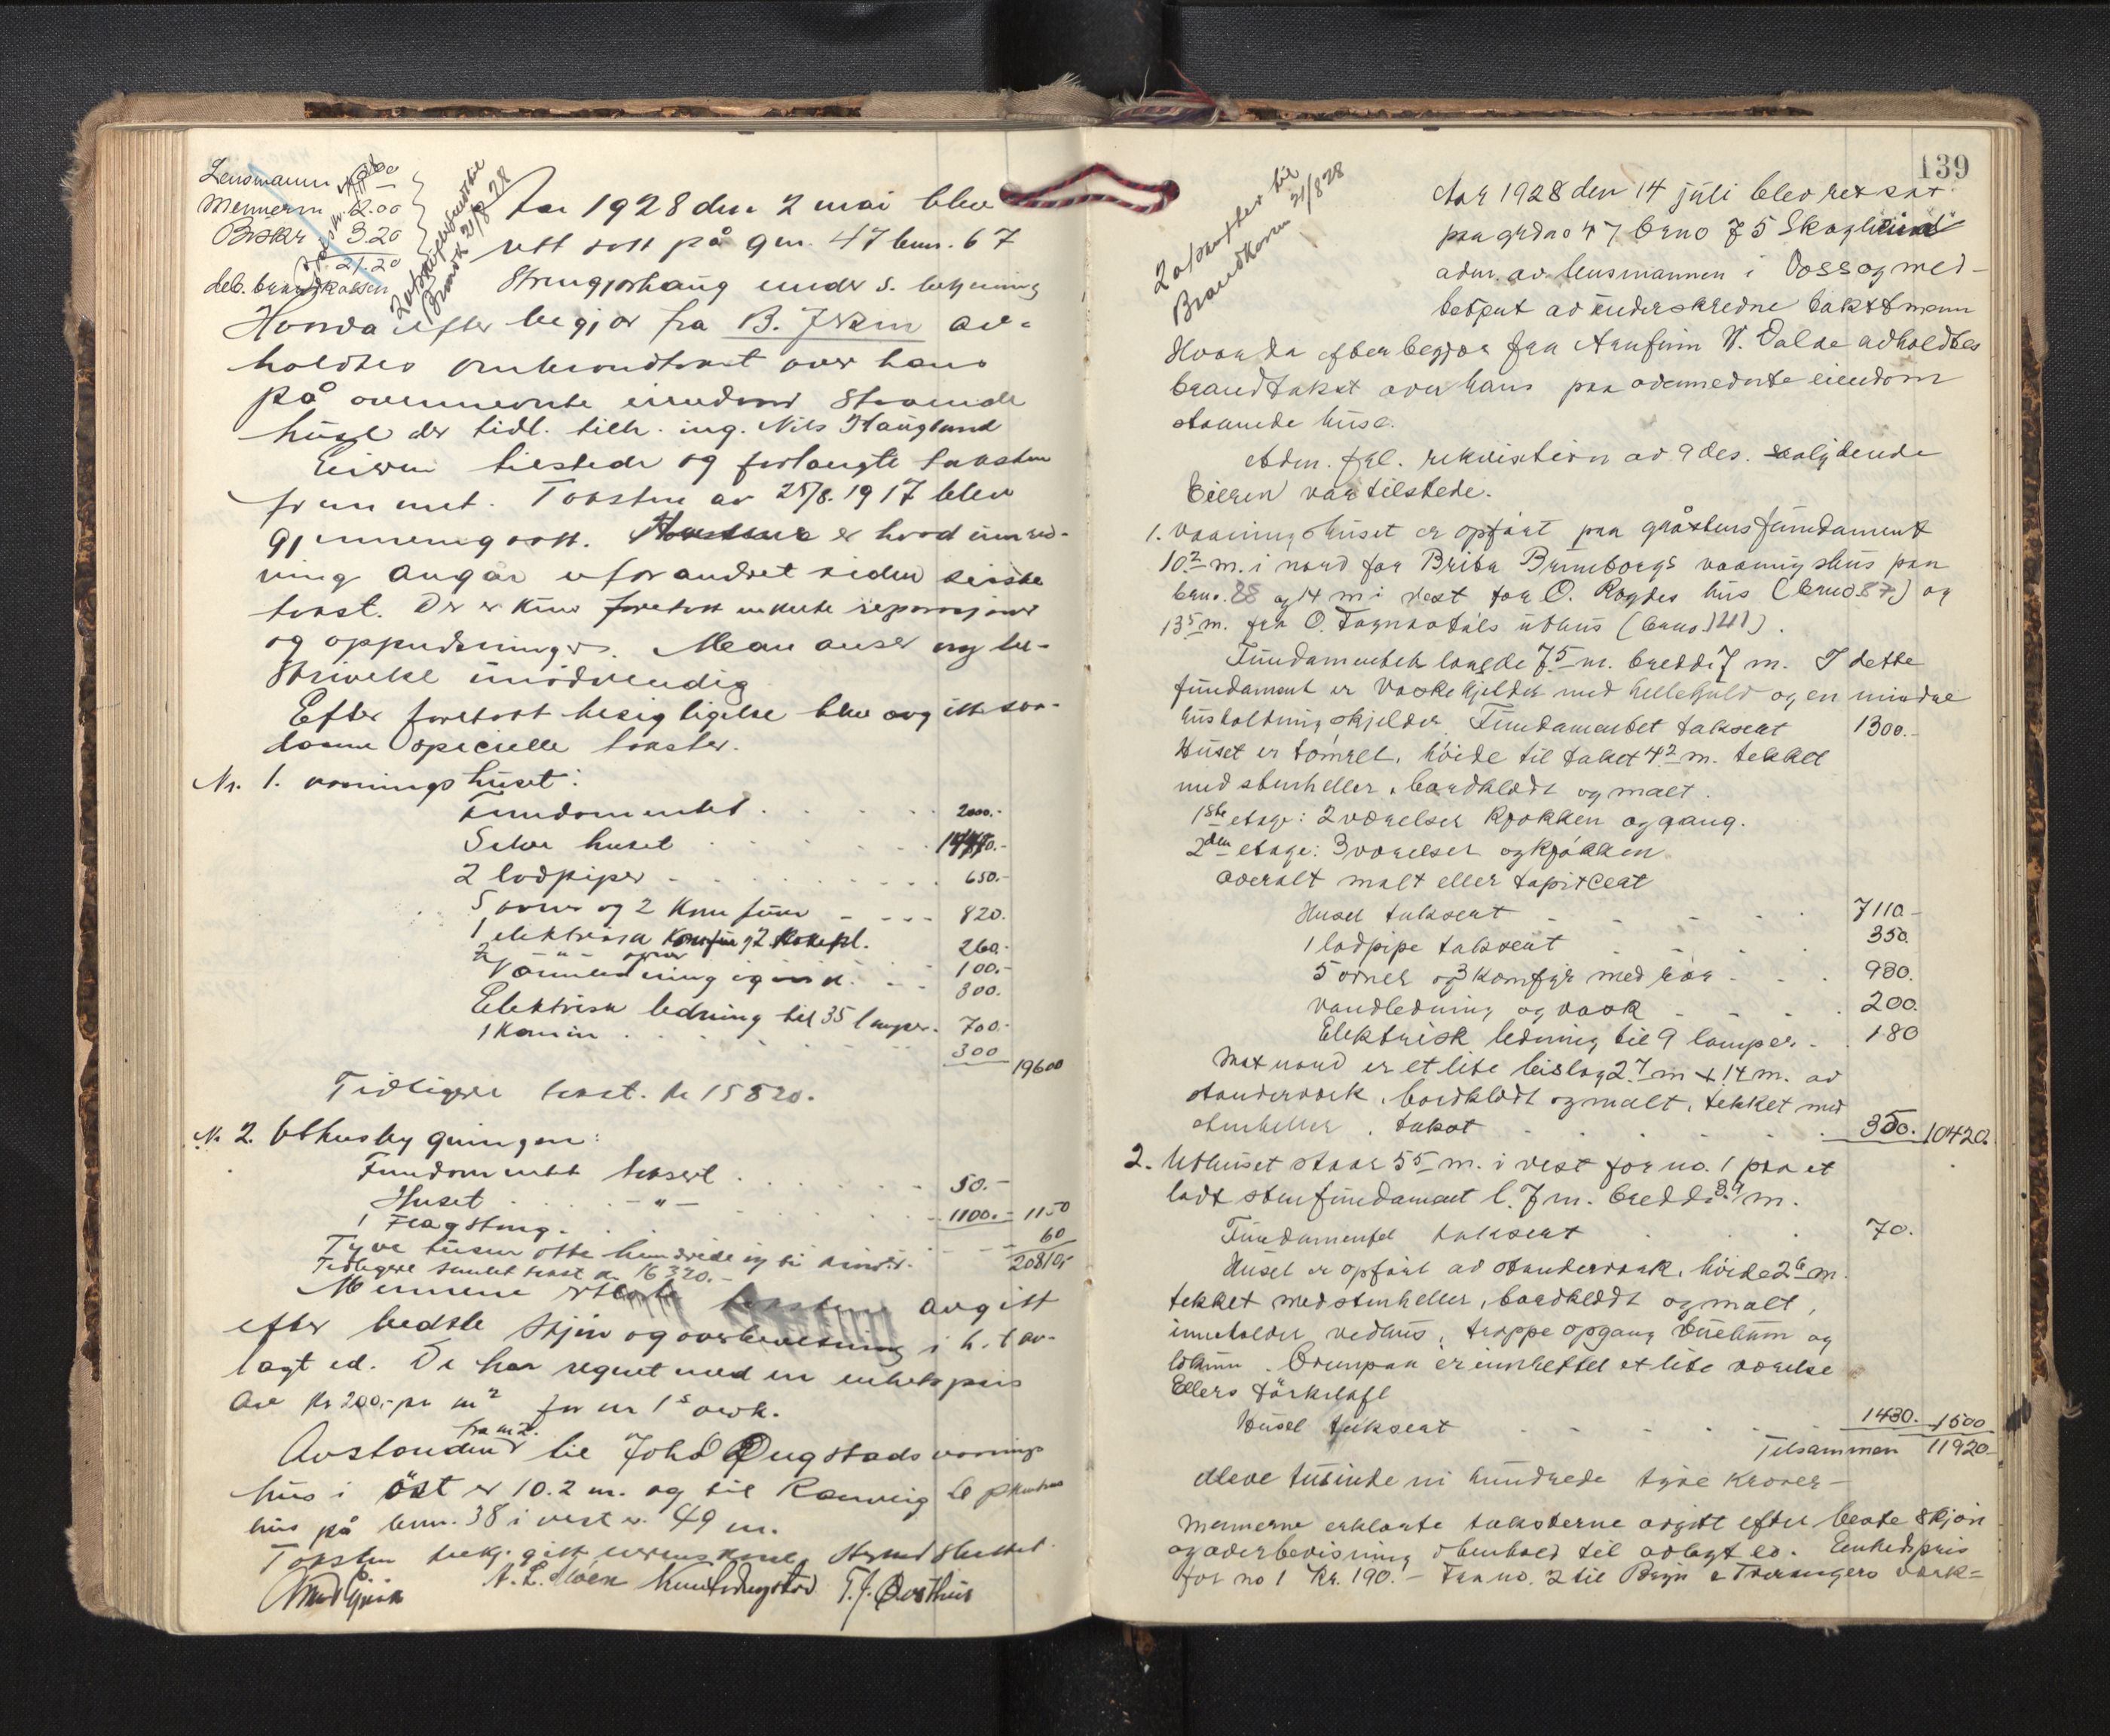 Lensmann
Mennerne 12.00
Bøker 3.20
21.20
deb. brandkassen
2 avskrifter sendt til
Brandk. 21/8 28
Aar 1928 den 2 mai blev
rett satt på gnr. 47 bnr. 67
under s. betjening
Hvorda efter begjær fra B. Jersin av-
holdtes ombrandtakst over hans
på ovennevnte eiendom stående
huse der tidl. tilh. ing. Nils Haugland
Eieren tilstede og forlangte taksten
fremmet. Taksten av 25/8. 1917 blev
gjennemgått. er hvad innred-
ning angår uforandret siden siste
takst. Der er kun foretatt enkelte reparasjoner
og oppudsninger. Man anser ny be-
skrivelse unødvendig
Efter foretatt besigtigelse blev avgitt så-
danne specielle takster.
Nr. 1. våningshuset:
Fundamentet 2000.-
Selve huset
2 lodpiper 650.-
5 ovner og 2 komfurer 820.
1 elektrisk komfur og 2 kokepl. 260.-
2 -"- ovner 100.-
Vannledning og vask 300.
Elektrisk ledning til 35 lamper. 700.-
1 Kamin 300 19600
Tidligere takst. kr 15820.
Nr. 2. Uthusbygningen:
Fundamentet taksert 50.-
Huset -"- 1100.- 1150
1 Flagstang. 60
Tyve tusen otte hundrede og ti kroner. 20810,-
Tidligere samlet takst kr. 16320.-
Mennene erklærte taksten avgitt
efter bedste skjøn og overbevisning i h. t av-
lagt ed. De har regnet med en enhetspris
av kr 200,- pr m² for nr 1's vedk.
Avstanden fra nr 2. til John Dugstads vånings
hus i öst er 10.2 m. og til Rannveig
hus på bnr. 38 i vest er 49 m.
Taksten bekj. gitt eieren Hermed sluttet.
N. L. Moen Knut Dugstad T. J. Østhus
139
2 avskrifter til
Brandkassen 21/8 28
Aar 1928 den 14 juli blev ret sat
paa grdno 47 brno 75 Skoglund
adm. av lensmannen i Voss og med-
betjent av underskrevne takstmenn
Hvorda efter begjær fra Arnfinn N. Dalae avholdtes
brandtakst over hans paa ovennevnte eiendom
staaende huse.
Adm. fql. rekvisition av 9 ds. saalydende
Eieren var tilstede.
1. Vaaningshuset er opført paa gråstensfundament
10.2 m. i nord for Brita Brunborgs vaaningshus paa
brno. 88 og 14 m i vest for O. Rogdes hus (brno. 87) og
13.5 m. fra O. uthus (brno. 141).
Fundamentets længde 7.5 m. bredde 7 m. I dette
fundament er vaskekjelder med hellegulv og en mindre
husholdningskjelder. Fundamentet taksert 1300.-
Huset er tömret, höide til taket 4.2 m. tekket
med stenheller, bordklædt og malt.
1ste etage: 2 værelser kjøkken og gang.
2den etage: 3 værelser og kjøkken.
Overalt malt eller tapitcert
Huset taksert 7110.-
1 lodpipe taksert 350.
5 ovner og 3 komfyr med rør 930.
vandledning og vask 200.
Elektrisk ledning til 9 lamper. 180
Mot nord er et lite bislag 2.7 m x 1.4 m. av
standerverk, bordklædt og malt, tekket med
stenheller. takst 350. 10420.
2. Uthuset staar 5.5 m. i vest for no. 1 paa et
lødt stenfundament l. 7 m. bredde 3.4 m.
Fundamentet taksert 70.
Huset er opført av standerverk, höide 2.6 m.
tekket med stenheller, bordklædt og malt,
inneholder vedhus, trappeopgang buerum og
lokum. Ovenpaa er innredet et lite værelse
Ellers törkeloft
Huset taksert 1430. 1500
Tilsammen 11920.-
elleve tusinde ni hundrede tyve kroner -
Mennerne erklærte taksterne avgitt efter beste skjøn
og overbevisning i henhold til avlagt ed. Enhedspris
for no 1 kr. 190.- Fra no. 2 til Bryn & Tveranger's verk=